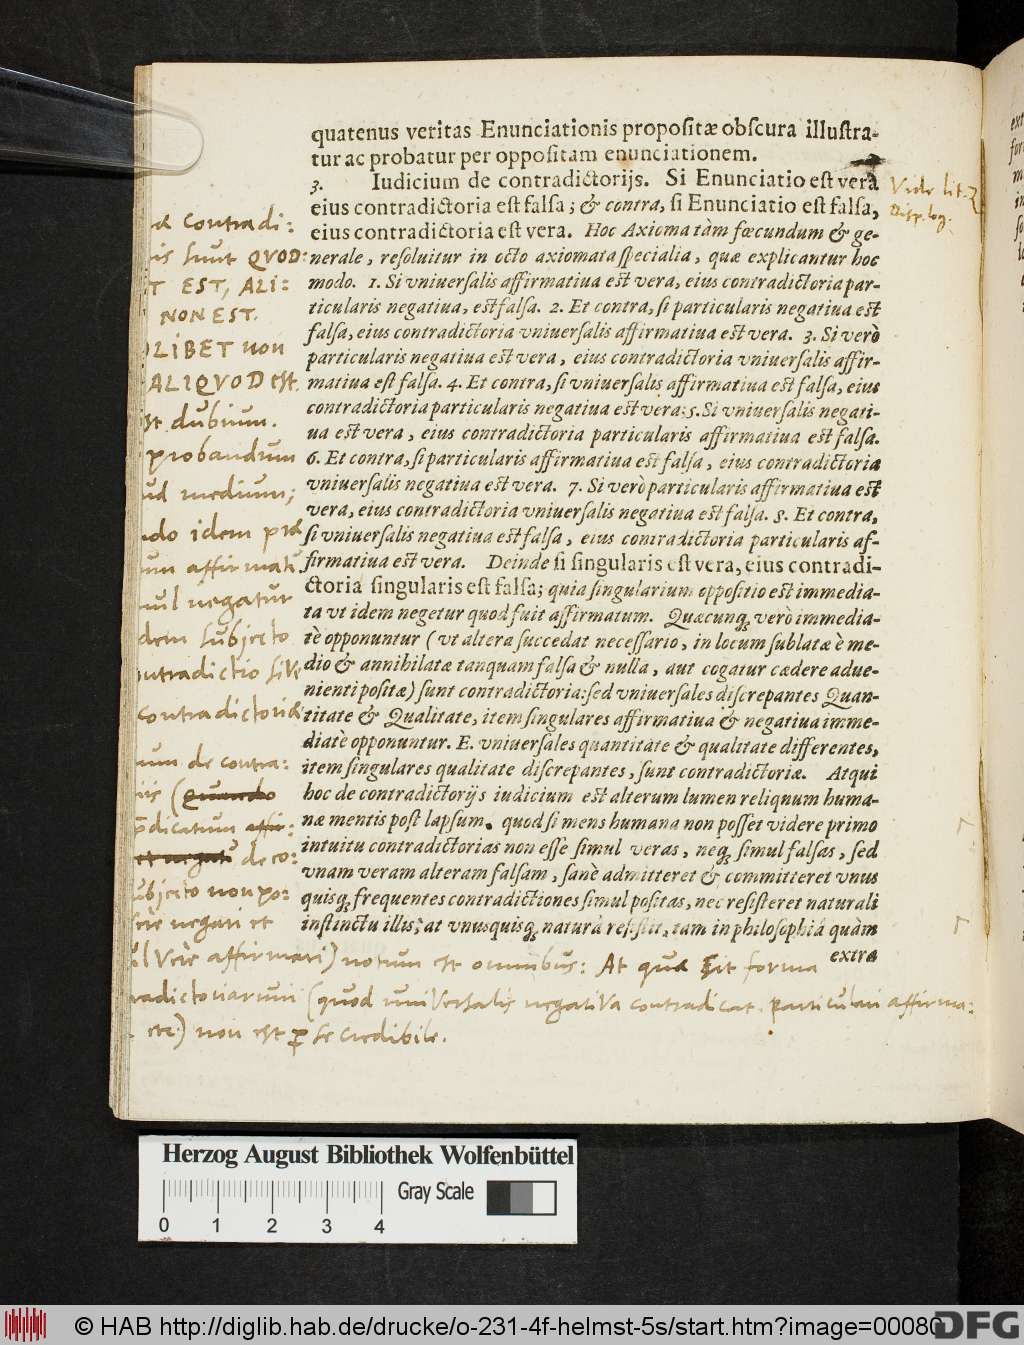 quatenus veritas Enunciationis propositæ obscura illustra-
tur ac probatur per oppositam enunciationem.
3. Iudicium de contradictorijs. Si Enunciatio est vera
eius contradictoria est falsa; & contra, si Enunciatio est falsa,
eius contradictoria est vera. Hoc Axioma tàm fœcundum & ge-
nerale, resoluitur in octo axiomata specialia, quæ explicantur hoc
modo. 1. Si vniuersalis affirmatiua est vera, eius contradictoria par-
ticularis negatiua, est falsa. 2. Et contra, si particularis negatiua est
falsa, eius contradictoria vniuersalis affirmatiua est vera. 3. Si verò
particularis negatiua est vera, eius contradictoria vniuersalis affir-
matiua est falsa. 4. Et contra, si vniuersalis affirmatiua est falsa, eius
contradictoria particularis negatiua est vera: 5. Si vniuersalis negati-
ua est vera, eius contradictoria particularis affirmatiua est falsa.
6. Et contra, si particularis affirmatiua est falsa, eius contradictoria
vniuersalis negatiua est vera. 7. Si verò particularis affirmatiua est
vera, eius contradictoria vniuersalis negatiua est falsa. 8. Et contra,
si vniuersalis negatiua est falsa, eius contradictoria particularis af-
firmatiua est vera. Deinde si singularis est vera, eius contradi-
ctoria singularis est falsa; quia singularium oppositio est immedia-
ta vt idem negetur quod fuit affirmatum. Quæcunq; verò immedia-
tè opponuntur (vt altera succedat necessario, in locum sublatæ è me-
dio & annihilatæ tanquam falsa & nulla, aut cogatur cædere adue-
nienti positæ) sunt contradictoria: sed vniuersales discrepantes Quan-
titate & Qualitate, item singulares affirmatiua & negatiua imme-
diatè opponuntur. E. vniuersales quantitate & qualitate differentes,
item singulares qualitate discrepantes, sunt contradictoriæ. Atqui
hoc de contradictorijs iudicium est alterum lumen reliquum huma-
næ mentis post lapsum. quod si mens humana non posset videre primo
intuitu contradictorias non esse simul veras, neq; simul falsas, sed
vnam veram alteram falsam, sanè admitteret & committeret vnus
quisq; frequentes contradictiones simul positas, nec resisteret naturali
instinctu illis; at vnusquisq; naturâ resistit, tam in philosophiâ quàm
extra
Vide lit. Z
Disp. log.
æ contradi:
is sunt QVOD:
T EST, ALI:
NON EST.
LIBET non
ALIQVOD est.
st dubium.
probandum
ud medium;
do idem præ
um affirmatū
mul negatur
dem subjecto
ntradictio sive
contradictoriæ
um de contra:
iis (quando
p̄dicatum affir:
et negatū de eo:
ubjecto non po:
negari et
l vere affirmari) notum est omnibus: At quæ sit forma
radictoriarum (quod universalis negativa contradicat particulari affirma:
etc.) non est per se credibile.
Herzog August Bibliothek Wolfenbüttel
Gray Scale
0 1 2 3 4
© HAB http://diglib.hab.de/drucke/o-231-4f-helmst-5s/start.htm?image=00080
DFG